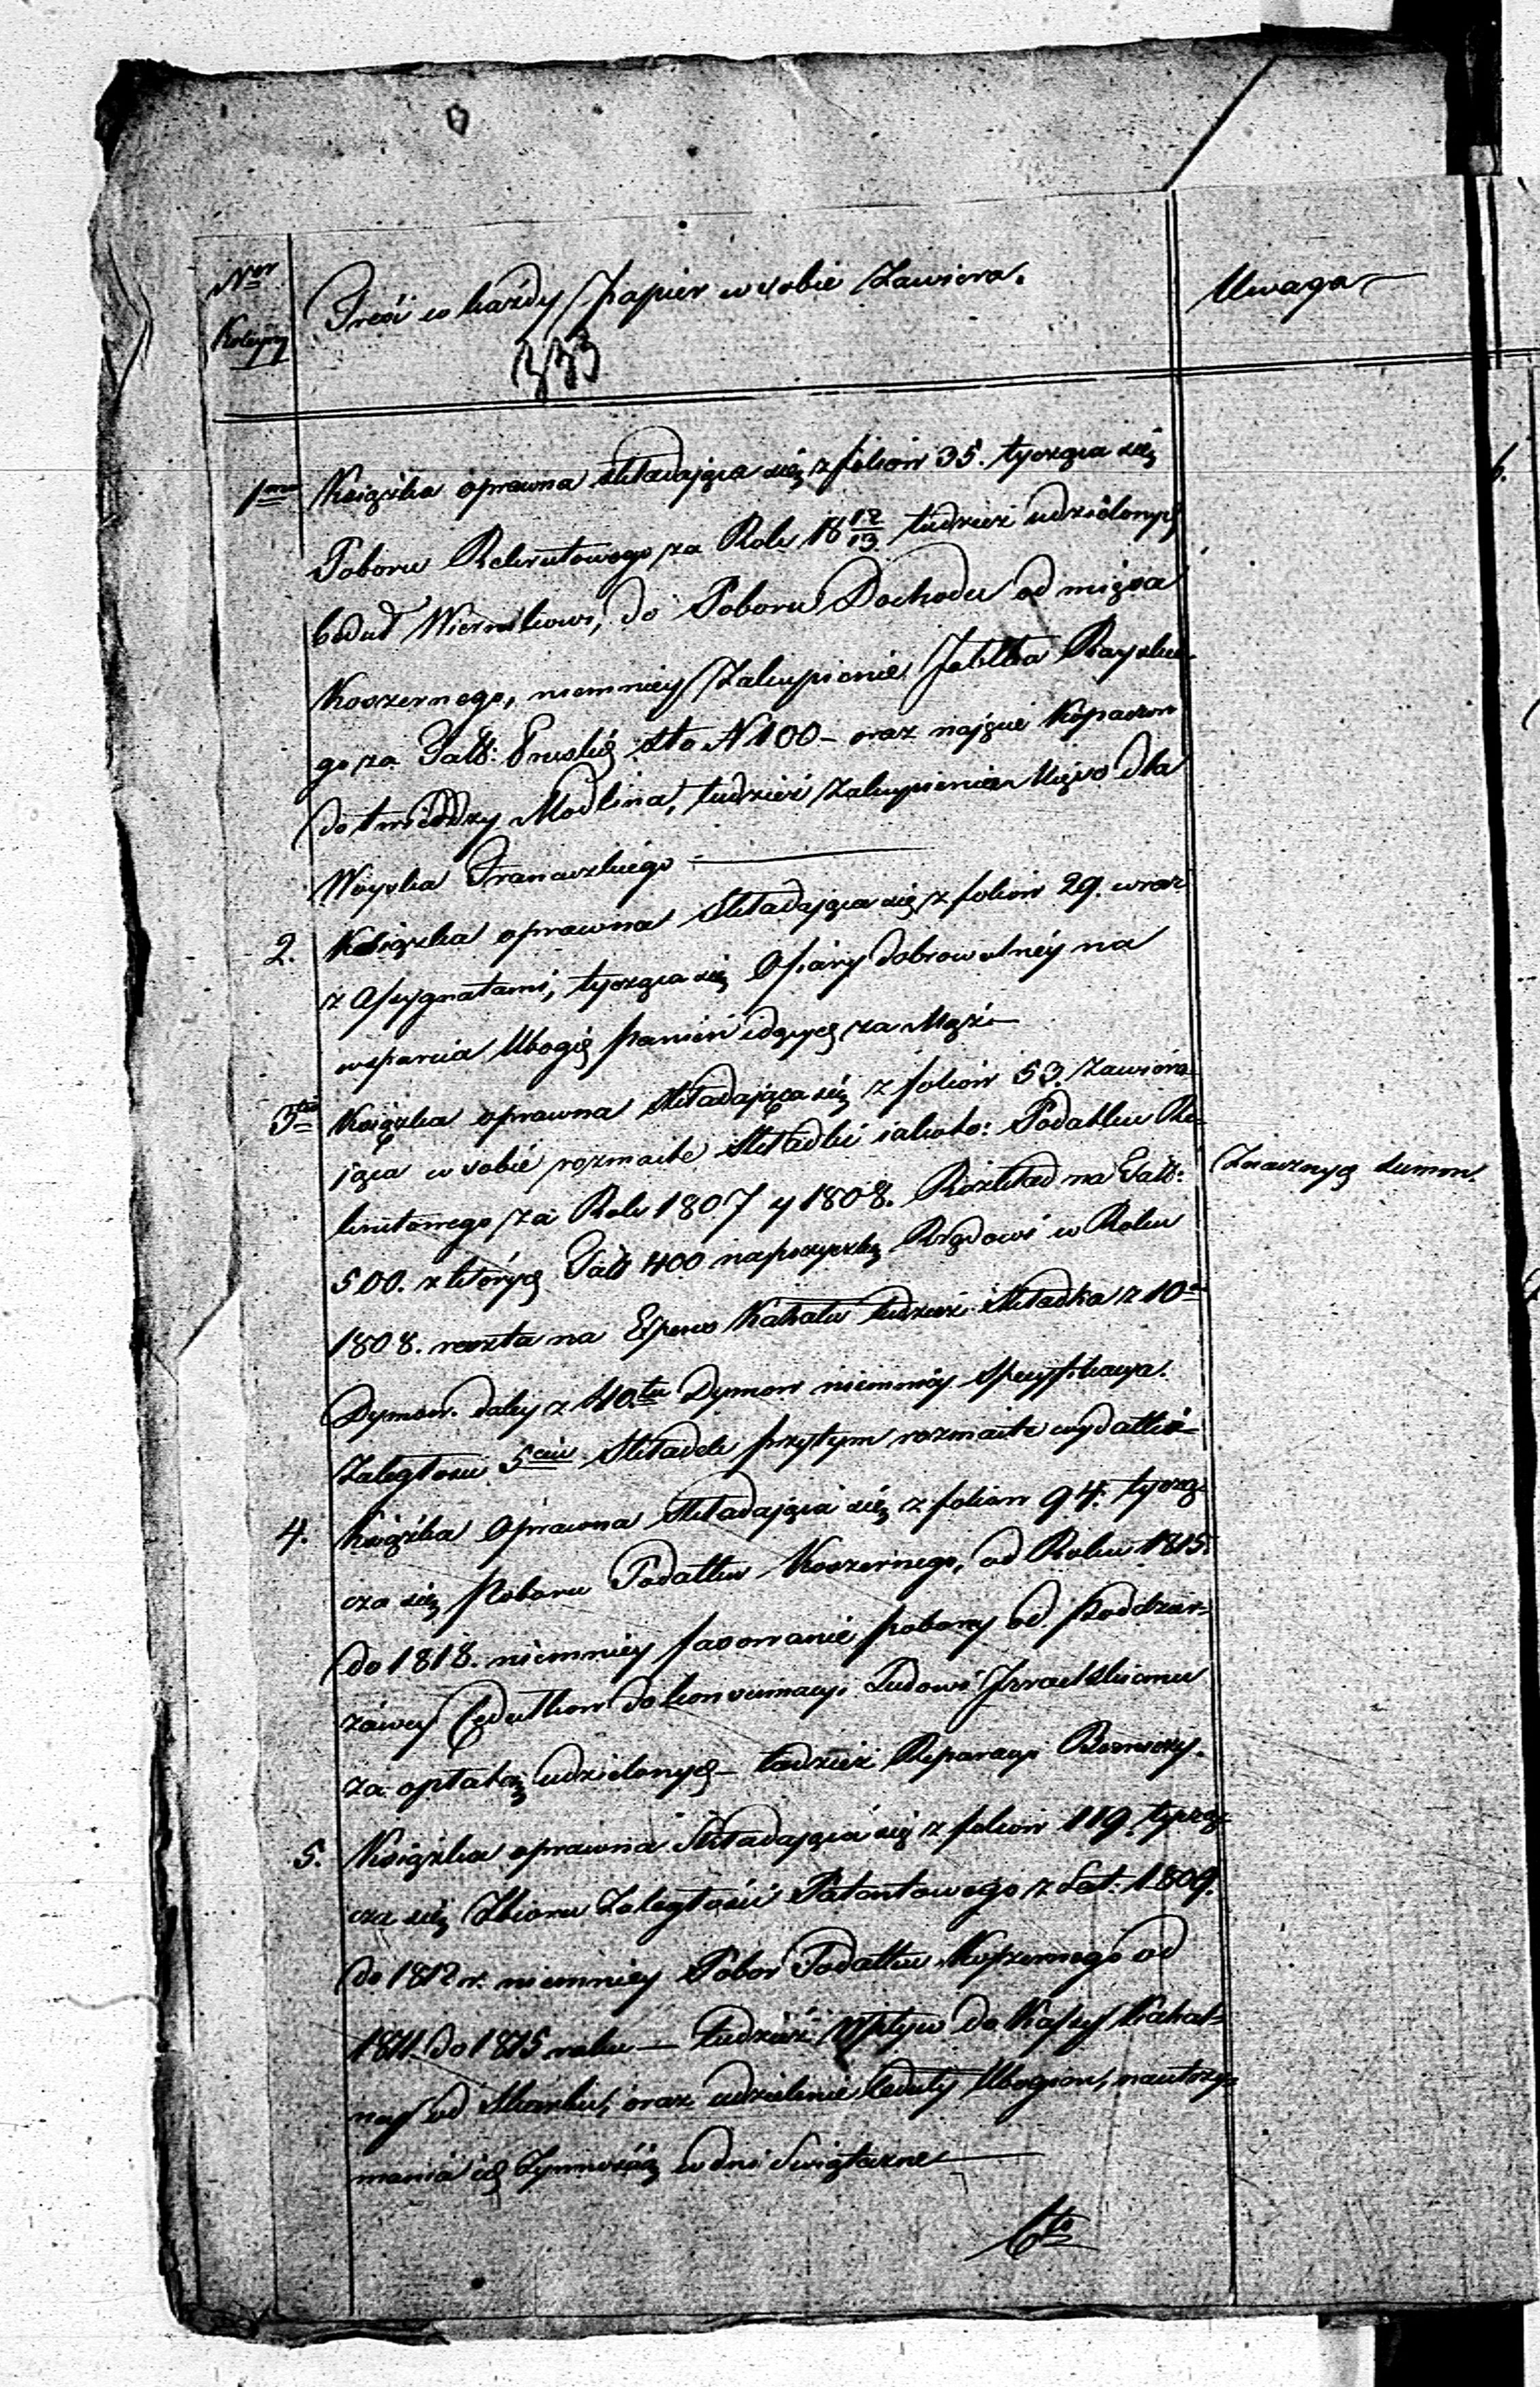 Ner
Kolejny
Treść co każdy Papier w sobie Zawiera.
Uwaga
333
1mo Książka oprawna składająca się z foliow 35. tycząca się
Poboru Rekrutowego za Rok 18 12/13 tudzież udzielonych
Cedul Wiernikowi, do Poboru Dochodu od mięsa
Koszernego, niemniey Zakupienie Jabłka Rayskie
go za Tall: Pruskich sto N 100 - oraz najęcie Kopaczow
do twierdzy Modlina, tudzież Zakupienia Mięso dla
Woyska Francuzkiego
2. Książka oprawna Składająca się z foliow 29. wraz
z Assygnatami, tycząca się Ofiary dobrowolney na
wsparcia Ubogich panien idących za Mąż
3tio Książka oprawna składająca się z foliow 53. Zawiera
jąca w sobie rozmaite Składki iakoto: Podatku Re-
krutowego za Rok 1807 y 1808. Rozkład na Tall:
500. z których Tall 400 na pożyczkę Rządowi w Roku
Znacznych Summ.
1808. reszta na Expens Kahału tudzież Składka z 10u
Dymow. daley z 40.tu Dymow niemniey Specyfikacya.
Zaległości 5ciu Składek przytym rozmaite wydatki
4. Książka Oprawna Składająca się z foliow 94. tyczą-
cza się Poboru Podatku Koszernego, od Roku 1815.
do 1818. niemniey pobory od Poddzier-
żawcy Cedułkow do konsumacyi Ludowi Izraelskiemu
za opłatą udzielonych - tudzież Reparacyi Boznicy.
5. Książka oprawna Składająca się z foliow 119. tyczą-
cza się Zbioru Zaległości Patentowego z Lat. 1809.
do 1812 r. niemniey Pobor Podatku Koszernego od
1811 do 1815 roku — tudzież Wpływ do Kassy Kahal-
ney od Skarbu, oraz udzielenie Ceduły Ubogiom, na utrzy-
mania ich Żywnością w dni Swiąteczne
6to
6.